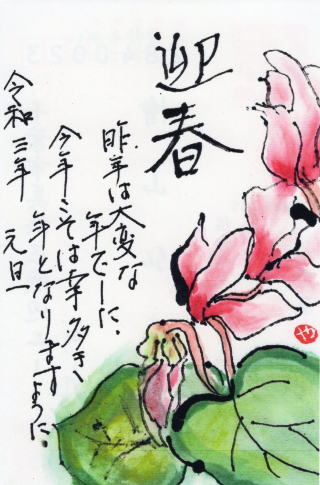 迎春
昨年は大変な
年でしに、
今年こそは幸多き、
年となりますように。
令和三年 元旦
や